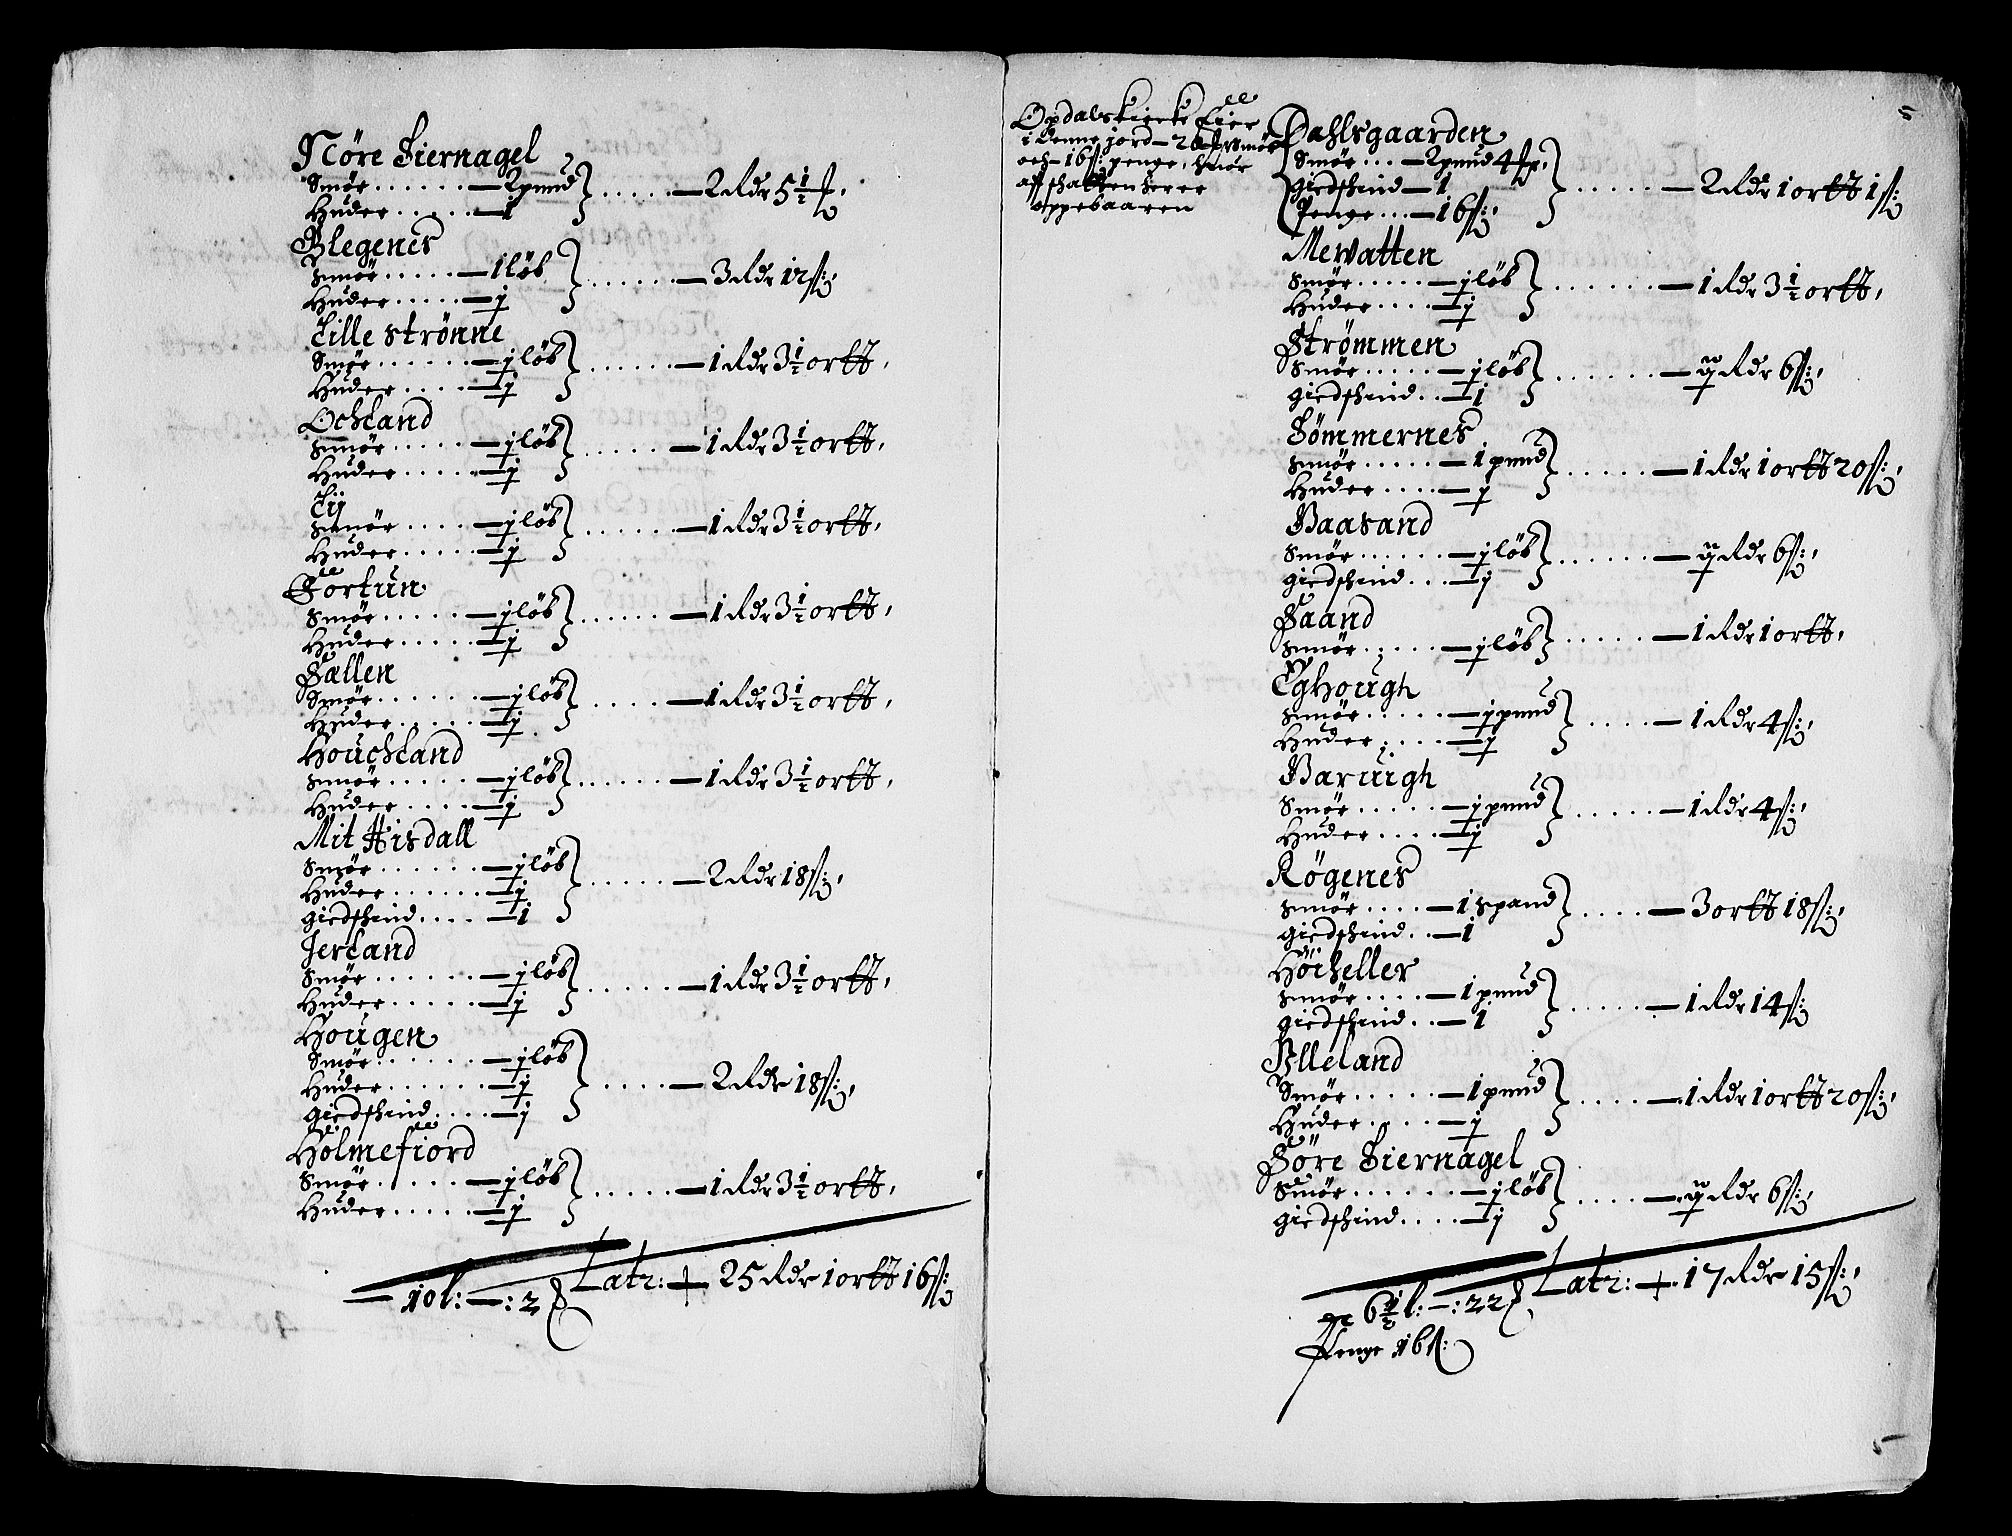 Nöre Siernagel
Smör . . . . . . — 2 pund
Huder . . . . . — 1 . . . . . — 2 Rdr 5 1/2 s.
Blegenes
Smör . . . . . — 1 löb
Huder . . . . . — j . . . . . . — 3 Rdr 12 s:
Lille Strönne
Smör . . . . . . — j löb
Huder . . . . — j . . . . . . — 1 Rdr 3 1/2 ortt,
Ochland
Smör . . . . . . — j löb
Huder . . . . . . — j . . . . . . — 1 Rdr 3 1/2 ortt,
Lij
Smör . . . . . — j löb
Huder . . . . . — j . . . . . . — 1 Rdr 3 1/2 ortt,
Fortun
Smör . . . . . . — j löb
Huder . . . . . — j . . . . . . — 1 Rdr 3 1/2 ortt,
Sallen
Smör . . . . . . — j löb
Huder . . . . . — j . . . . . — 1 Rdr 3 1/2 ortt,
Houchland
Smör . . . . . — j löb
Huder . . . . — j . . . . . . — 1 Rdr 3 1/2 ortt,
Mit Hisdall
Smör . . . . . . — j löb
Huder . . . . . . — j
giedschind . . . . — 1 . . . . . — 2 Rdr 18 s:,
Jerland
Smör . . . . . . — j löb
Huder . . . . . — j . . . . . — 1 Rdr 3 1/2 ortt,
Hougen
Smör . . . . . . — j löb
Huder . . . . . . — j
giedschind . . . . — j . . . . — 2 Rdr 18 s:,
Holmefiord
Smör . . . . . — j löb
Huder . . . . . — j . . . . . . — 1 Rdr 3 1/2 ortt,
Latr: — 25 Rdr 1 ortt 16 s:
10 l: — : 2
5
Opdals kircke Eier
i denne jord — 2 smör
och — 16 s: penge, smör
aff
oppebaaren
Dahlsgaarden
Smör . . . — 2 pund 4
giedschind — 1
Penge . . . — 16 s:, . . . . . . — 2 Rdr 1 ortt 1 s:
Mevatten
Smör . . . . . — j löb
Huder . . . . . — j . . . . . . — 1 Rdr 3 1/2 ortt,
Strömmen
Smör . . . . . — j löb
giedschind . . — 1 . . . . . . — ij Rdr 6 s:,
Sömmernes
Smör . . . . . — 1 pund
Huder . . . . — j . . . . . — 1 Rdr 1 ortt 20 s:,
Baasand
Smör . . . . . . — j löb
giedschind . . . — j . . . . . . — ij Rdr 6 s:,
Saand
Smör . . . . . — j löb . . . . . — 1 Rdr 1 ortt,
Eghough
Smör . . . . . — j pund
Huder . . . . — j . . . . — 1 Rdr 4 s:,
Baruigh
Smör . . . . . . — j pund
Huder . . . . — j . . . . . — 1 Rdr 4 s:,
Rögenes
Smör . . . . — 1 spand
giedschind . . — 1 . . . . — 3 ortt 18 s:,
Höcheller
Smör . . . . — 1 pund
giedschind . . — 1 . . . . . — 1 Rdr 14 s:
Illeland
Smör . . . . . — 1 pund
Huder . . . . — j . . . . — 1 Rdr 1 ortt 20 s:,
Söre Siernagel
Smör . . . . . . — j löb
giedschind . . . . — j . . . . — ij Rdr 6 s:,
Latr: — 17 Rdr 15 s:,
6 1/2 l: — : 22
Penge 16 s:
5